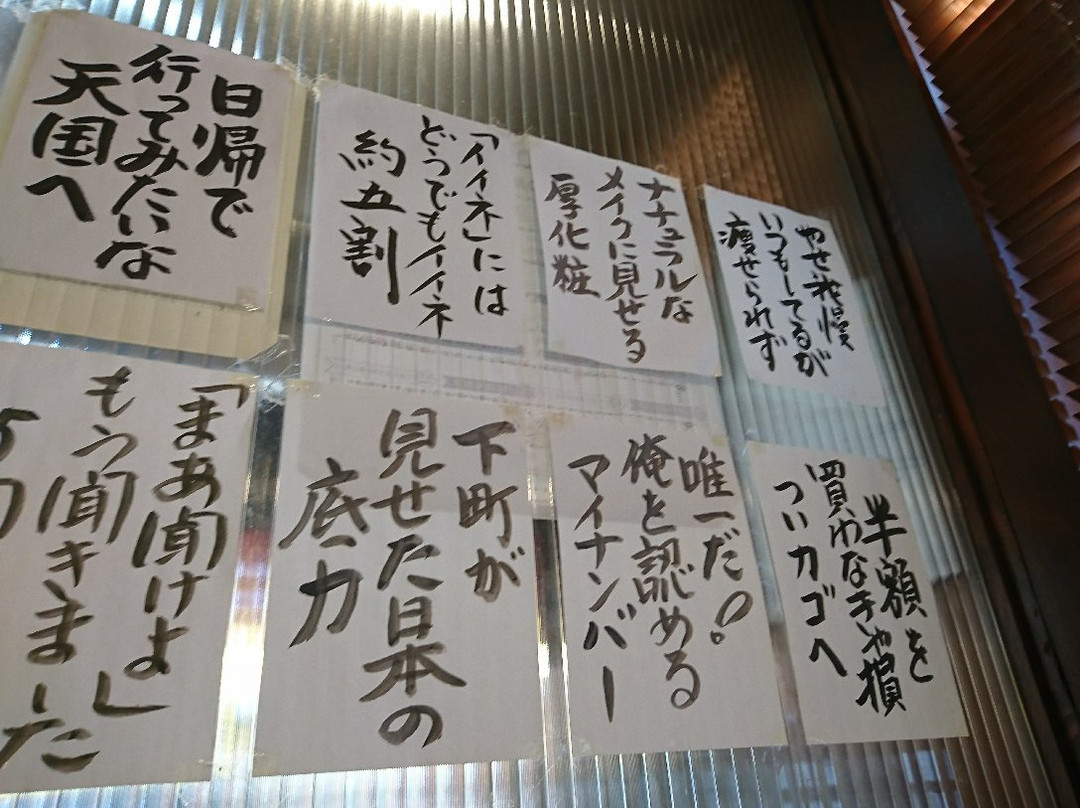 やせ我慢
いつもしてるが
痩せられず
ナチュラルな
メイクに見せる
厚化粧
「イイネ」には
どうでもイイネ
約五割
日帰で
行ってみたいな
天国へ
半額を
買わなきゃ損
ついカゴへ
唯一だ!
俺を認める
マイナンバー
下町が
見せた日本の
底力
「まあ聞けよ」
もう聞きました